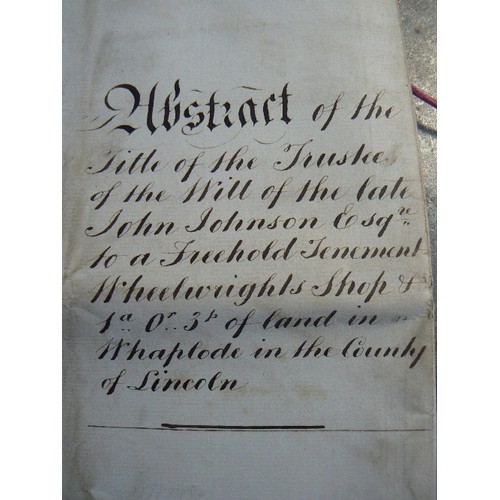 Abstract of the
Title of the Trustees
of the Will of the late
John Johnson Esqre
to a Freehold Tenement
Wheelwrights Shop &
1a. 0r. 3p of land in
Whaplode in the County
of Lincoln